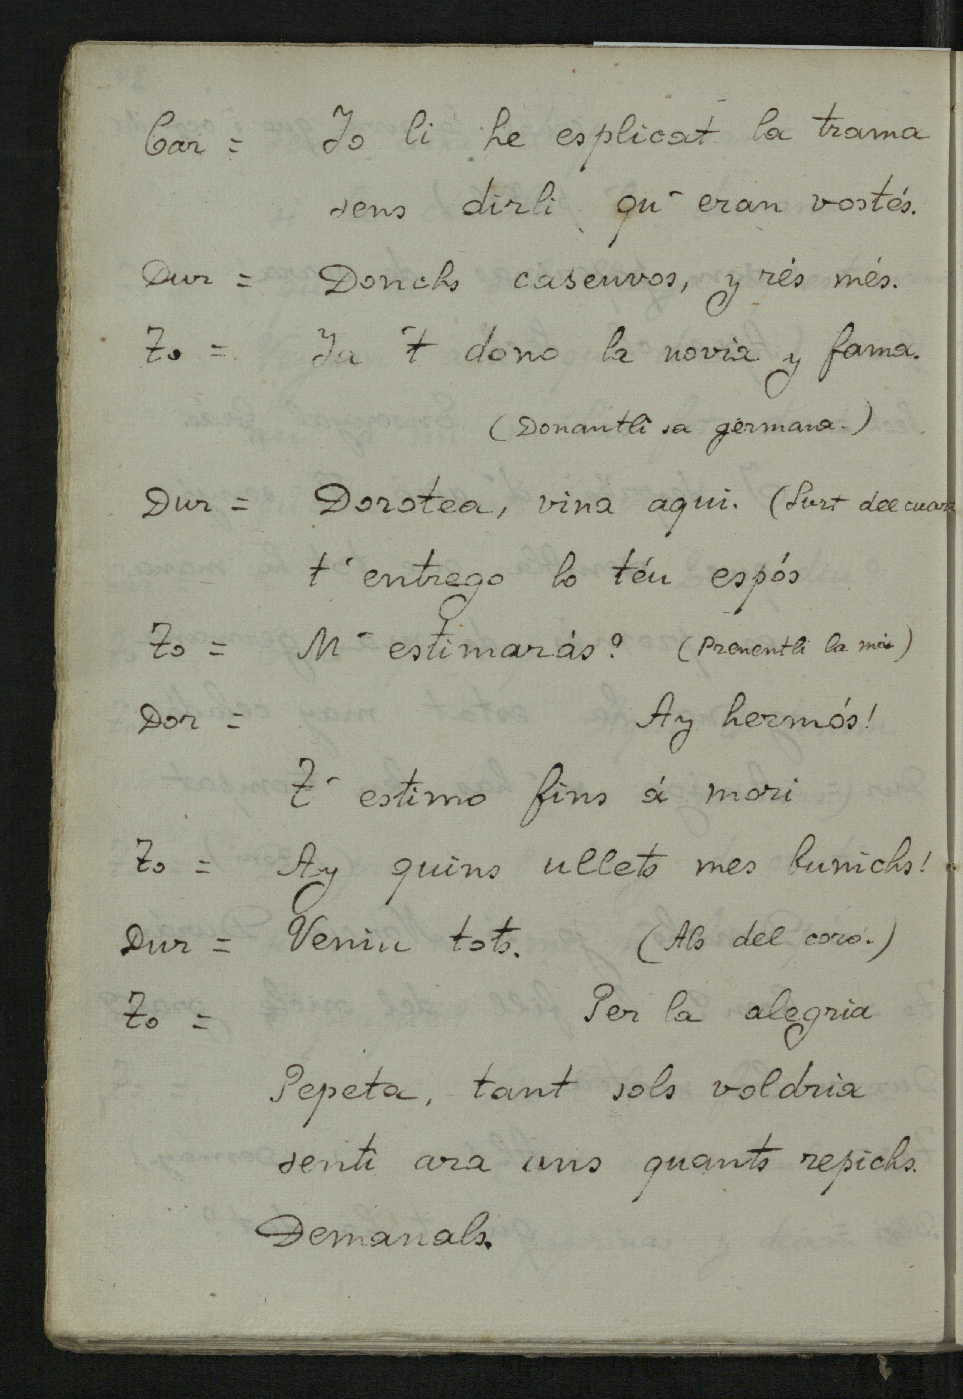 Car = Jo li he esplicat la trama
sens dirli qu' eran vostés.
Dur = Donchs caseuvos, y rés més.
To = Ja 't dono la novia y fama.
(Donantli sa germana.)
Dur = Dorotea, vina aqui. (Surt del cuart
t' entrego lo téu espós
To = M' estimarás? (Prenentli la má)
Dor = Ay hermós!
T' estimo fins á mori
To = Ay quins ullets mes bunichs!
Dur = Veniu tots. (Als del coro.)
To = Per la alegria
Pepeta, tant sols voldria
senti ara uns quants repichs.
Demanals.